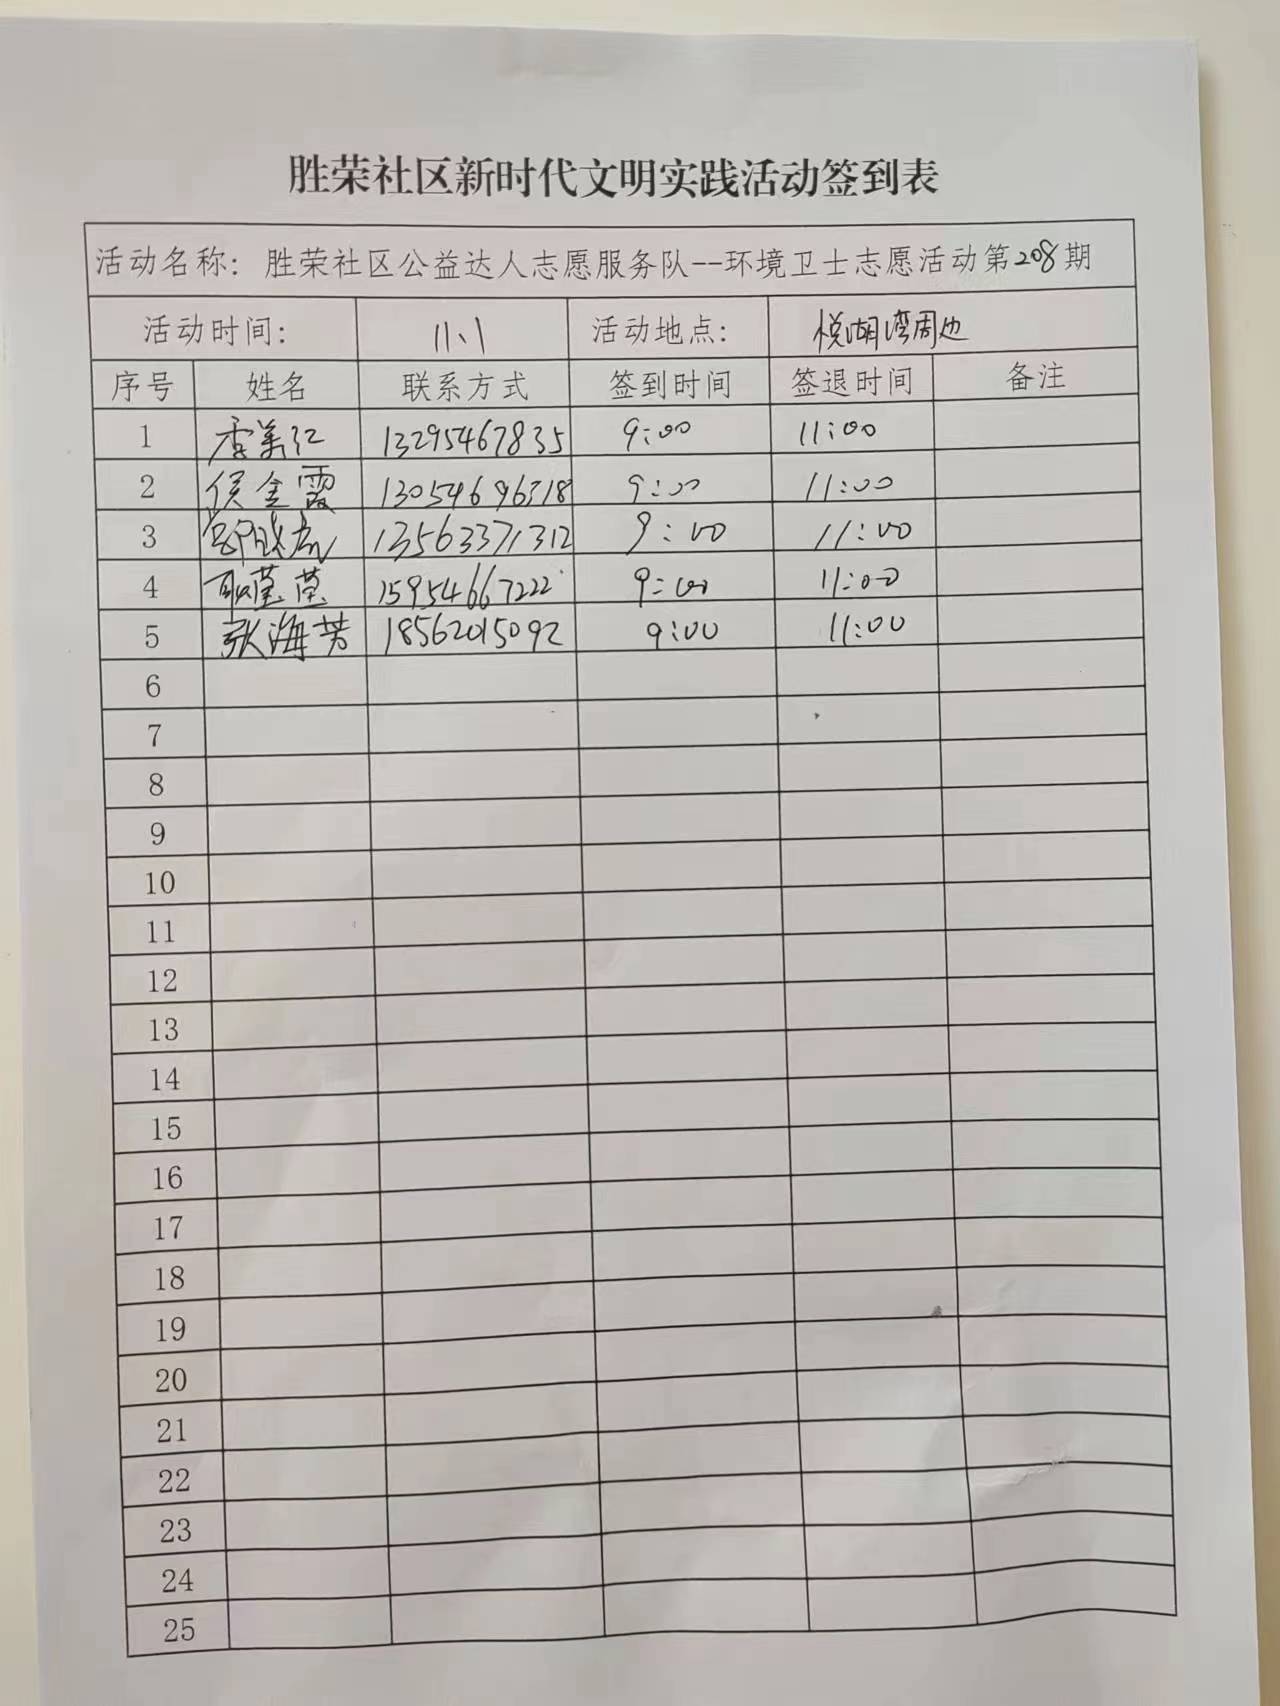 胜荣社区新时代文明实践活动签到表
活动名称：胜荣社区公益达人志愿服务队--环境卫士志愿活动第208期
活动时间： 11、1 活动地点： 悦湖湾周边
序号 姓名 联系方式 签到时间 签退时间 备注
1 李美江 13295467835 9:00 11:00
2 侯金霞 13054696318 9:00 11:00
3 13563371312 9:00 11:00
4 耿莹莹 15954667222 9:00 11:00
5 张海芳 18562015092 9:00 11:00
6
7
8
9
10
11
12
13
14
15
16
17
18
19
20
21
22
23
24
25